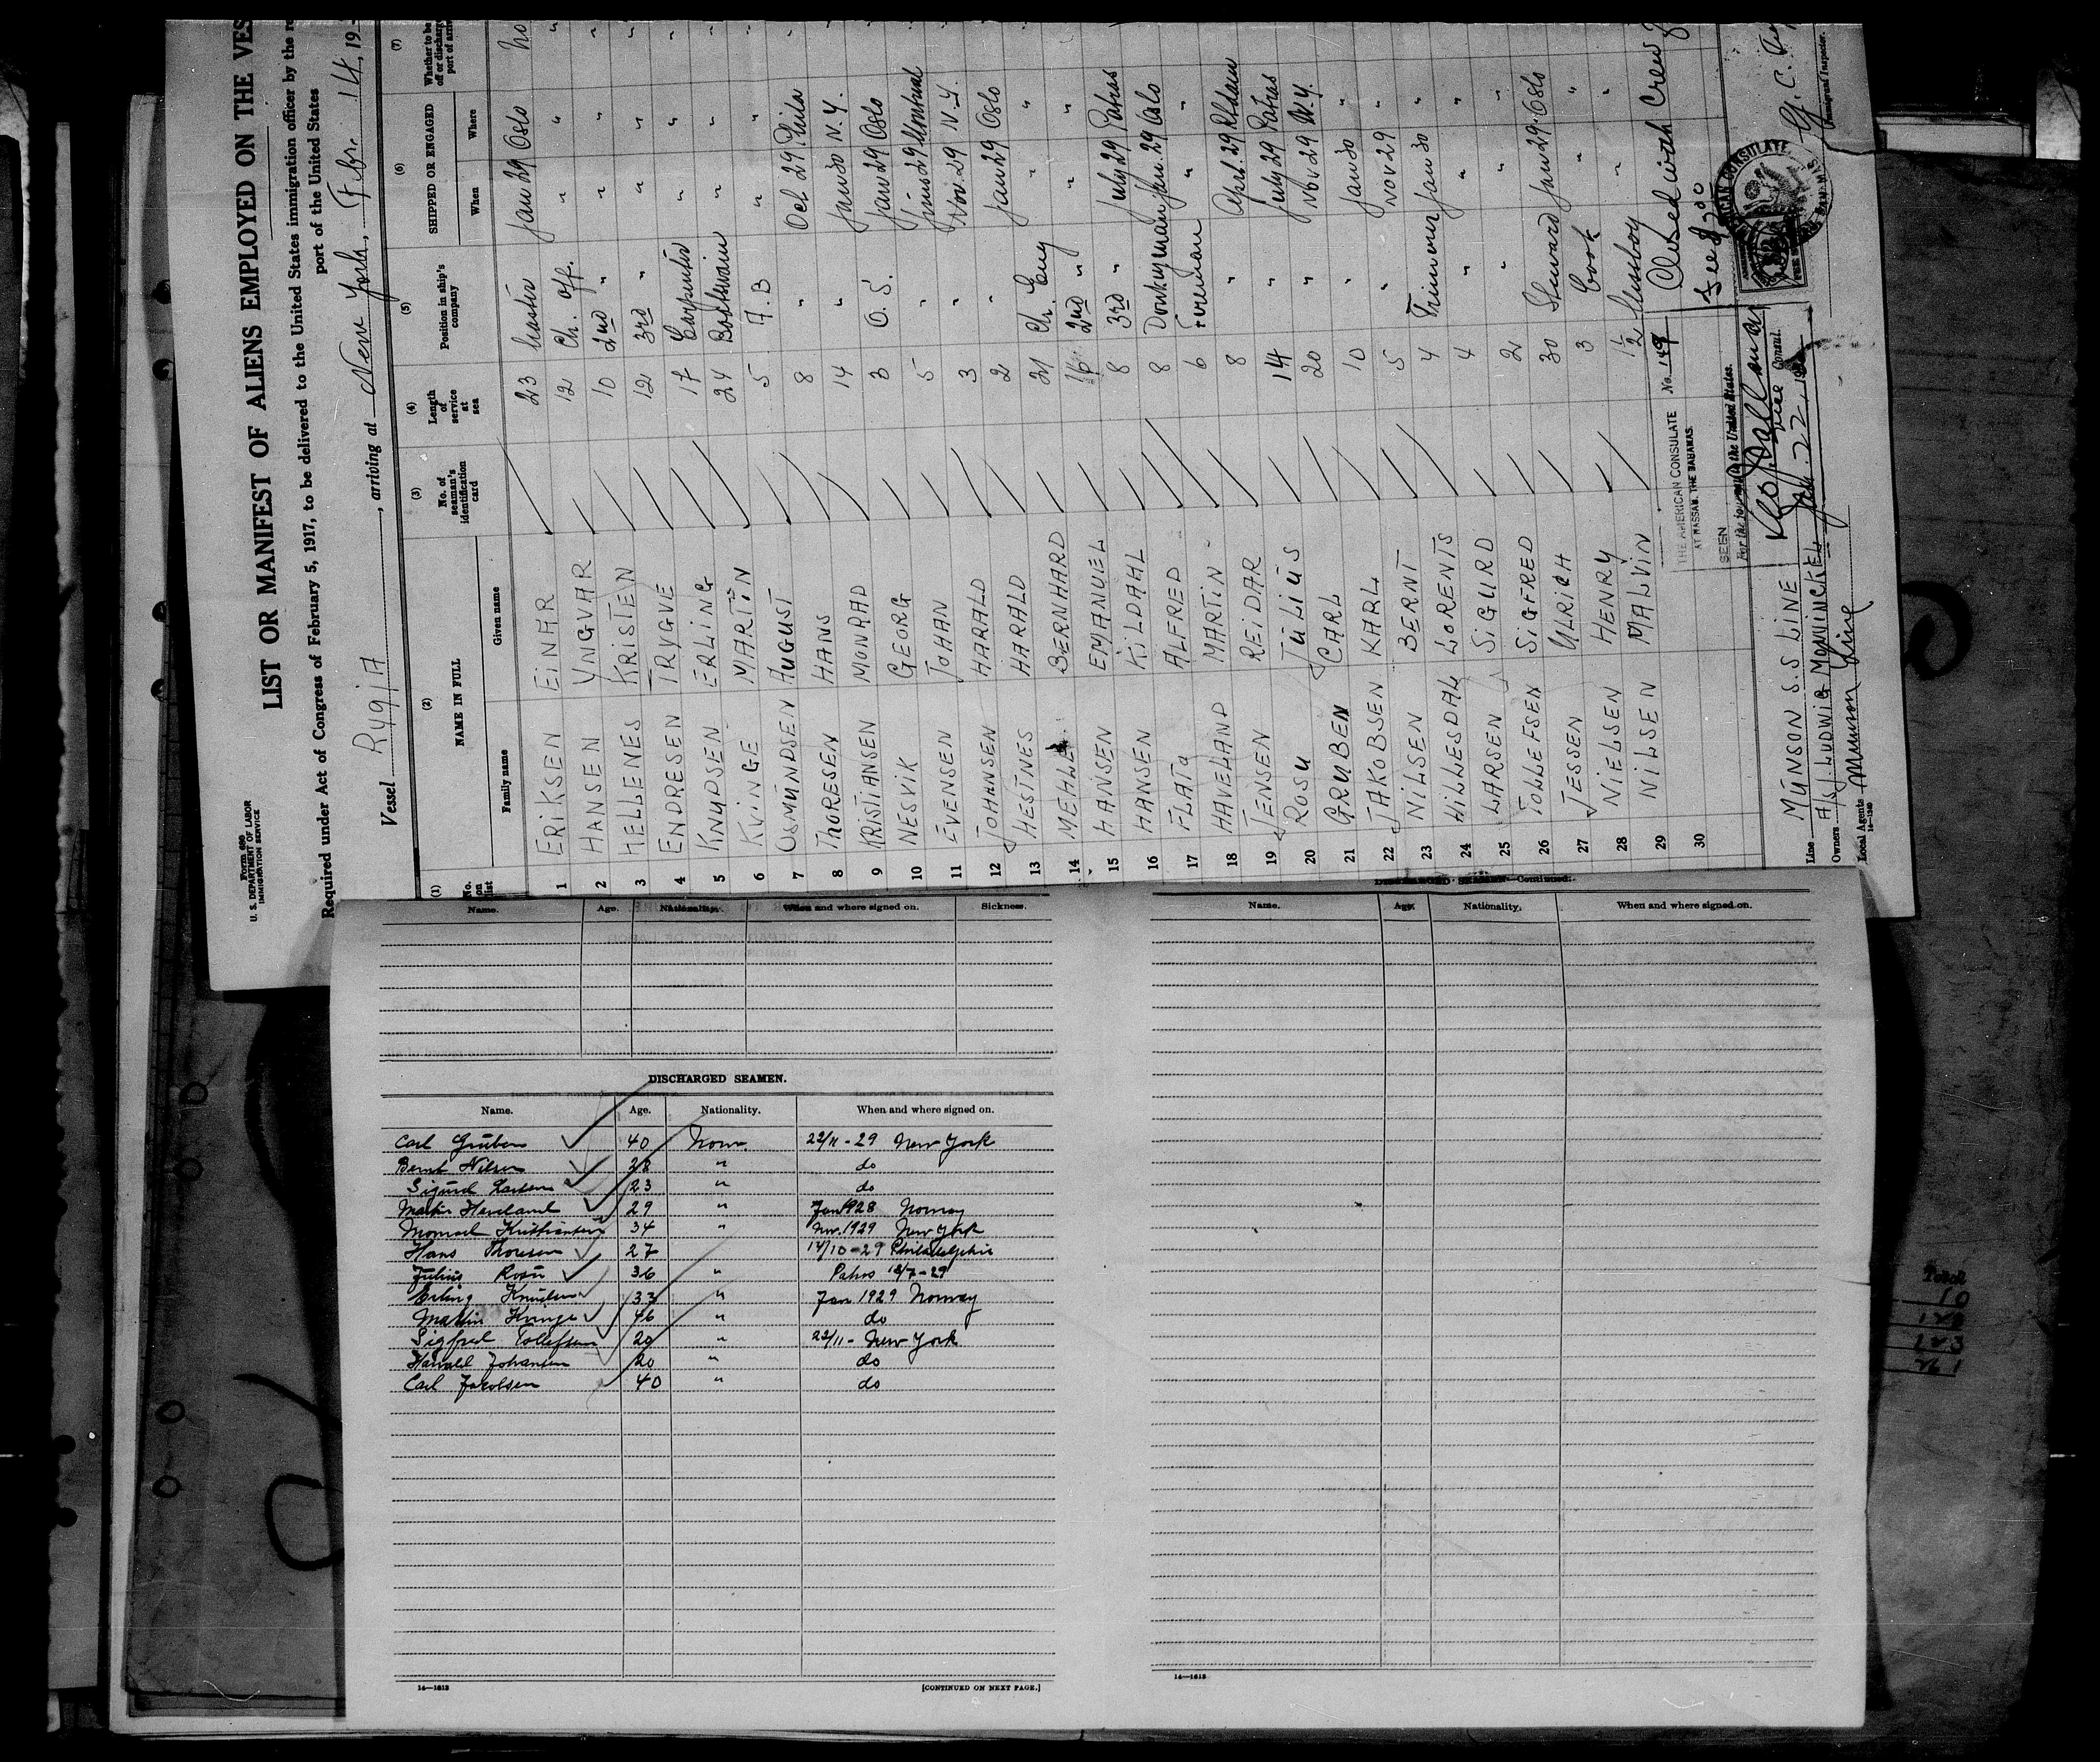 Form 680
U. S. DEPARTMENT OF LABOR
IMMIGRATION SERVICE
LIST OR MANIFEST OF ALIENS EMPLOYED ON THE VES
Required under Act of Congress of February 5, 1917, to be delivered to the United States immigration officer by the re
port of the United States
Vessel RugjA, arriving at New York, Febr. 14, 19
(1) (2) (3) (4) (5) (6) (7)
No. on list NAME IN FULL No. of seaman's identification card Length of service at sea Position in ship's company SHIPPED OR ENGAGED Whether to be off or discharg port of arri
Family name Given name When Where
1 ERIKSEN EiNAR 23 Master Jan 29 Oslo no
2 HANSEN YNGVAR 12 Ch. off. " " "
3 HELLENES KRISTEN 10 2nd " " " "
4 ENDRESEN TRYGVE 12 3rd " " " "
5 KNUDSEN ERLING 17 Carpenter " " "
6 KViNGE MARTiN 24 Boatswain " " "
7 OSMUNDSEN AUGUST 5 A.B " " "
8 THORESEN HANS 8 " Oct 29 Phila "
9 KRISTIANSEN MONRAD 14 " Jan 30 N.Y. "
10 NESVIK GEORG 3 O.S. Jan 29 Oslo "
11 EVENSEN JOHAN 5 " Juni 29 Montreal "
12 JOHANSEN HARALD 3 " Nov. 29 N.Y. "
13 HESTNES HARALD 2 " Jan 29 Oslo "
14 MEHLE BERNHARD 21 Ch. Eng " "
15 HANSEN EMANUEL 16 2nd " " "
16 HANSEN KiLDAHL 8 3rd " July 29 Patras
17 FLATU ALFRED 8 Donkeyman Jan. 29 Oslo
18 HAVELAND MARTiN 6 Fireman " "
19 JENSEN REiDAR 8 " April. 29
20 ROSU JULiUS 14 " July 29 Patras
21 GRUBEN CARL 20 " Nov 29 N.Y.
22 JAKOBSEN KARL 10 " Jan 30 "
23 NILSEN BERNT 5 " Nov 29 "
24 HiLLESDAL LORENTS 4 Trimmer Jan 30 "
25 LARSEN SiGURD 4 " " "
26 TOLLEFSEN SiGFRED 2 " " "
27 JESSEN ULRiCH 30 Steward Jan 29 Oslo
28 NiELSEN HENRY 3 Cook " "
29 NiLSEN MALVIN 1 1/2 Messboy " "
30
Closed with Crew
Fee $
THE AMERICAN CONSULATE No. 149
AT NASSAU, THE BAHAMAS.
SEEN
For the journey to the United States.
Vice Consul.
Jan. 22, 19
AMERICAN CONSULATE
Immigrant Inspector.
Line MUNSON S.S LINE
Owners A/S LUDWIG MOWINCKEL
Local Agents Munson Line
14—1240
Name. Age. Nationality. When and where signed on. Sickness.
DISCHARGED SEAMEN.
Name. Age. Nationality. When and where signed on.
Carl Gruben 40 Norw. 22/11 - 29 New York
Bernt Nilsen 28 " do
Sigurd Larsen 23 " do
Martin Haveland 29 " Jan 1928 Norway
Monrad Kristiansen 34 " Nov. 1929 New York
Hans Thoresen 27 " 14/10 - 29 Philadelphia
Julius Rosu 36 " Patras 18/7 - 29
Erling Knudsen 33 " Jan 1929 Norway
Martin Kvinge 46 " do
Sigfred Tollefsen 20 " 22/11 - New York
Harald Johansen 20 " do
Carl Jacobsen 40 " do
14—1613
[CONTINUED ON NEXT PAGE.]
DISCHARGED SEAMEN—Continued.
Name. Age. Nationality. When and where signed on.
14—1613